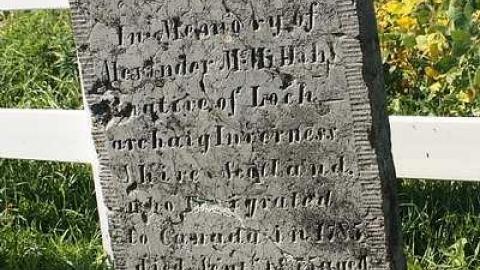 In Memory of
Alexander McMillan
a native of Loch-
archaig Inverness
Shire Scotland.
who Emigrated
to Canada in
died aged